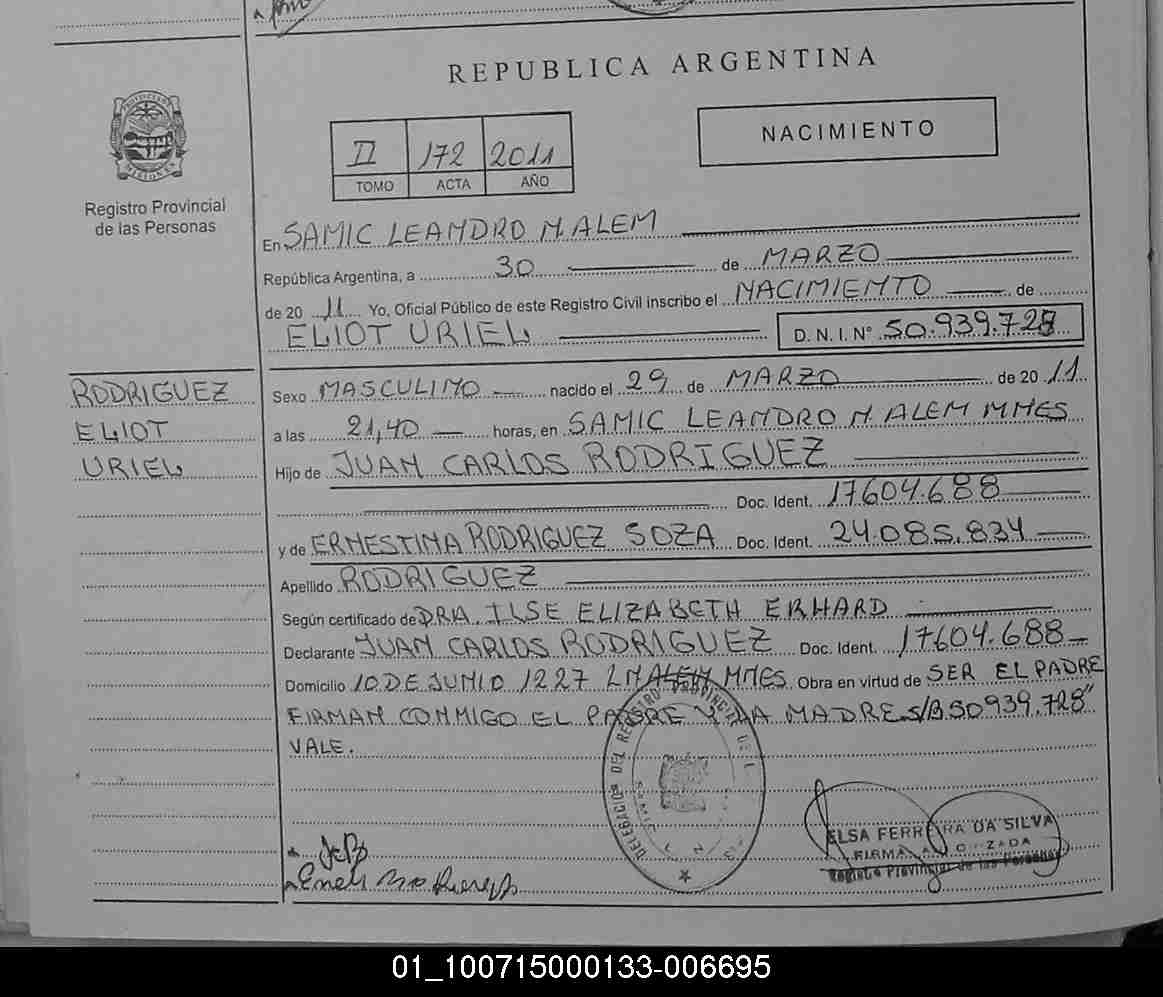 REPUBLICA ARGENTINA
PROVINCIA DE
MISIONES
Registro Provincial
de las Personas
II 172 2011
TOMO ACTA AÑO
NACIMIENTO
En SAMIC LEANDRO N. ALEM
República Argentina, a 30 de MARZO
de 2011 Yo, Oficial Público de este Registro Civil inscribo el NACIMIENTO de
ELIOT URIEL D. N. I. Nº 50.939.728
RODRIGUEZ
ELIOT
URIEL
Sexo MASCULINO nacido el 29 de MARZO de 2011
a las 21,40 horas, en SAMIC LEANDRO N. ALEM MNES
Hijo de JUAN CARLOS RODRIGUEZ
Doc. Ident. 17604.688
y de ERNESTINA RODRIGUEZ SOZA Doc. Ident. 24.085.834
Apellido RODRIGUEZ
Según certificado de DRA. ILSE ELIZABETH ERHARD
Declarante JUAN CARLOS RODRIGUEZ Doc. Ident. 17604.688
Domicilio 10 DE JUNIO 1227 LN ALEM MNES Obra en virtud de SER EL PADRE
FIRMAN CONMIGO EL PADRE Y LA MADRE S/B 50939.728"
VALE.
DELEGACION DEL REGISTRO PROVINCIAL DE L
ELSA FERREIRA DA SILVA
FIRMA AUTORIZADA
Registro Provincial de las Personas
01_100715000133-006695